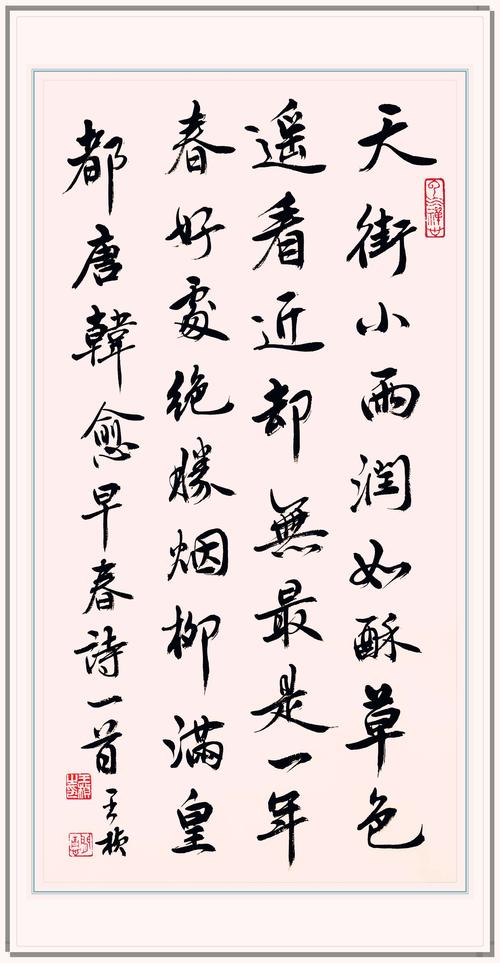 天街小雨润如酥草色
遥看近却無最是一年
春好處绝勝烟柳滿皇
都唐韓愈早春詩一首
王楨